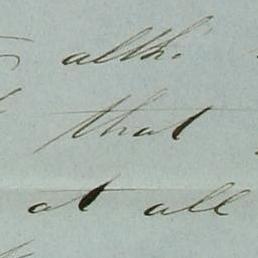 alth.
that
at all